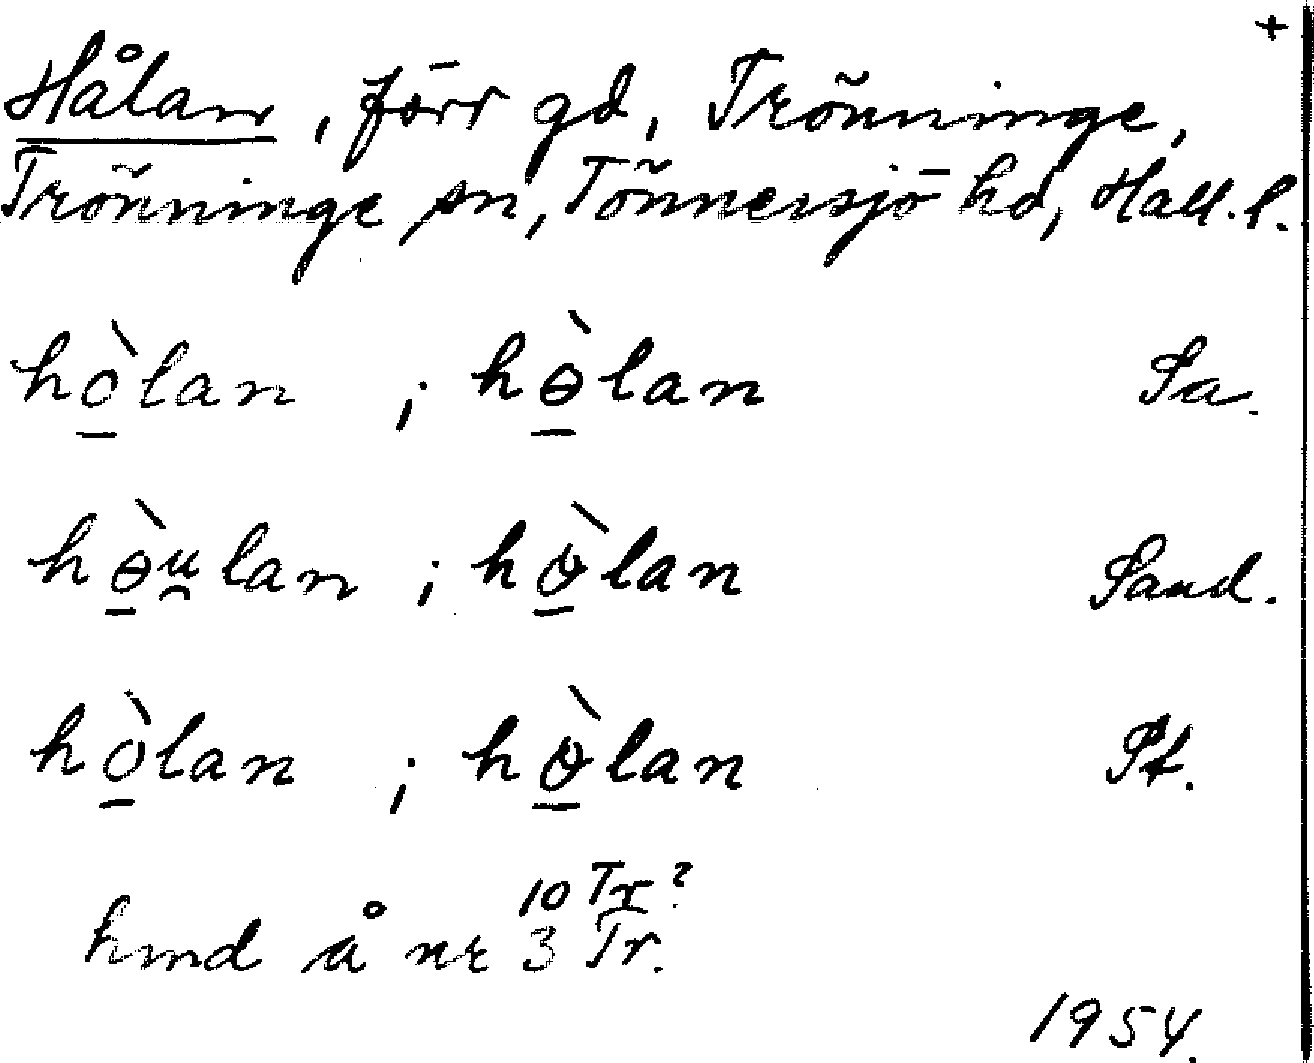 +
Hålan, förr gd, Trönninge,
Trönninge sn, Tönnersjö hd, Hall. l.
hò̲lan ; hɵ̲̀lan Sa.
hɵ̲̀u̯lan ; hò̲lan Sand.
hò̲lan ; hò̲lan Pt.
hmd å nr 3 Tr.
10 Tr?
1954.